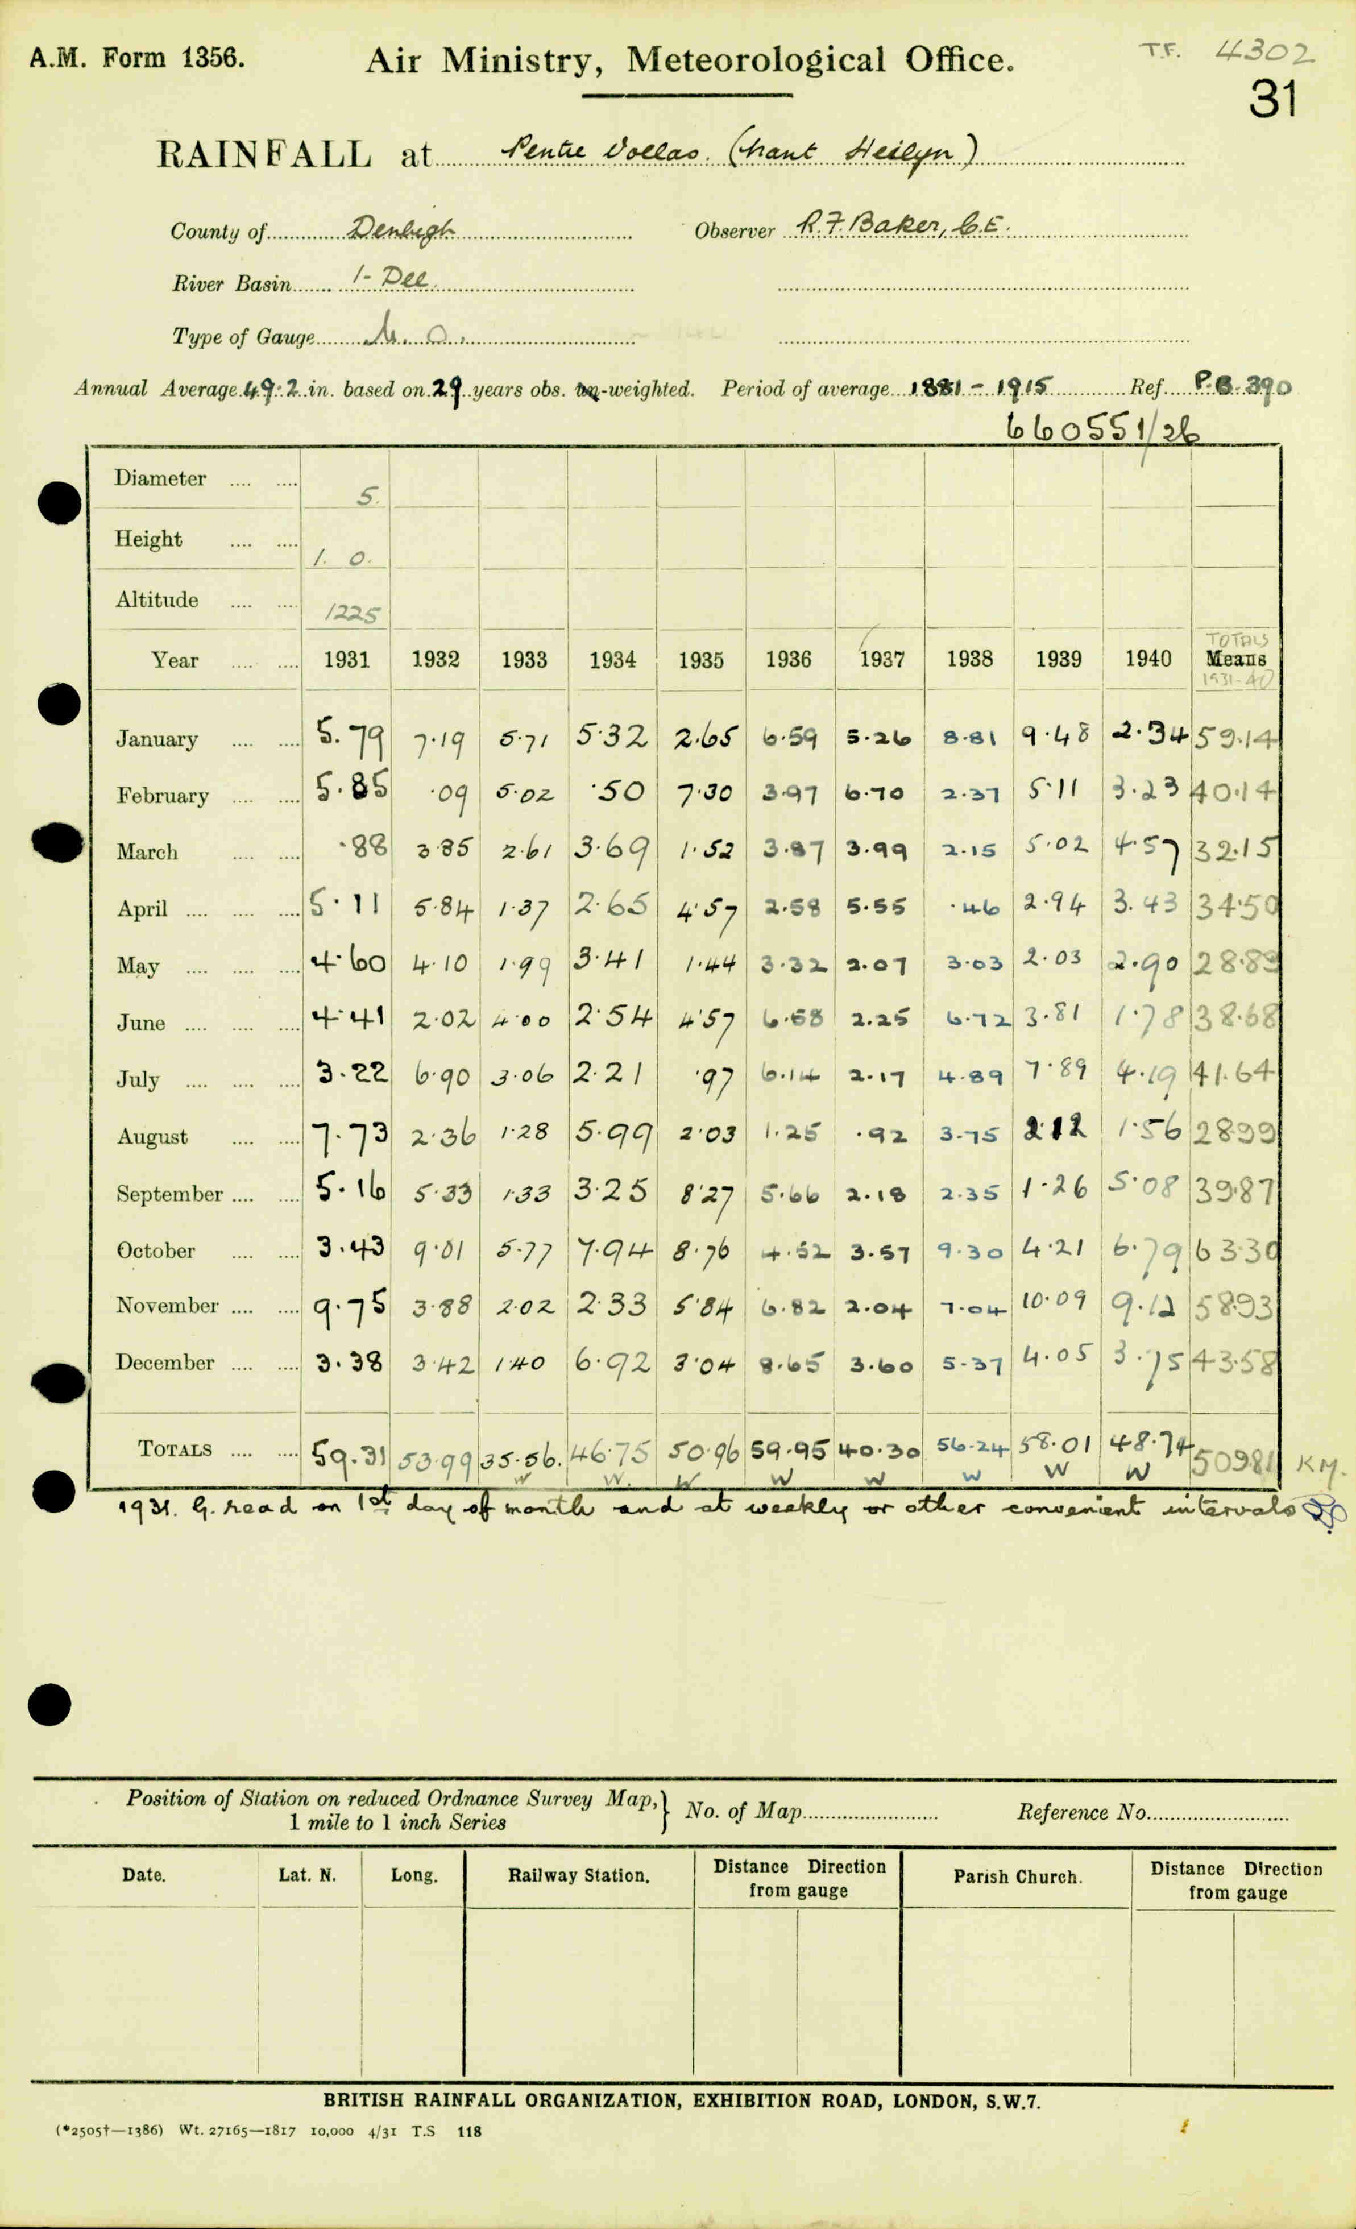 A.M. Form 1356. Air Ministry, Meteorological Office. T.F. 4302
31
RAINFALL at Pentre Voelas. (Nant Heilyn)
County of Denbigh Observer R. F. Baker, C.E.
River Basin 1- Dee
Type of Gauge M. O.
Annual Average 49.2 in. based on 29 years obs. un-weighted. Period of average 1881 - 1915 Ref. P.B. 390
660551/26
Diameter 5.
Height 1. 0.
Altitude 1225
TOTALS
Year 1931 1932 1933 1934 1935 1936 1937 1938 1939 1940 Means
1931-40
January 5.79 7.19 5.71 5.32 2.65 6.59 5.26 8.81 9.48 2.34 59.14
February 5.85 .09 5.02 .50 7.30 3.97 6.70 2.37 5.11 3.23 40.14
March .88 3.85 2.61 3.69 1.52 3.87 3.99 2.15 5.02 4.57 32.15
April 5.11 5.84 1.37 2.65 4.57 2.58 5.55 .46 2.94 3.43 34.50
May 4.60 4.10 1.99 3.41 1.44 3.32 2.07 3.03 2.03 2.90 28.89
June 4.41 2.02 4.00 2.54 4.57 6.58 2.25 6.72 3.81 1.78 38.68
July 3.22 6.90 3.06 2.21 .97 6.14 2.17 4.89 7.89 4.19 41.64
August 7.73 2.36 1.28 5.99 2.03 1.25 .92 3.75 2.12 1.56 28.99
September 5.16 5.33 1.33 3.25 8.27 5.66 2.18 2.35 1.26 5.08 39.87
October 3.43 9.01 5.77 7.94 8.76 4.52 3.57 9.30 4.21 6.79 63.30
November 9.75 3.88 2.02 2.33 5.84 6.82 2.04 7.04 10.09 9.12 58.93
December 3.38 3.42 1.40 6.92 3.04 8.65 3.60 5.37 4.05 3.75 43.58
TOTALS 59.31 53.99 35.56. 46.75 50.96 59.95 40.30 56.24 58.01 48.74 509.81 KM.
W W. W W W W W W
1931. G. read on 1st day of month and at weekly or other convenient intervals
Position of Station on reduced Ordnance Survey Map, } No. of Map Reference No.
1 mile to 1 inch Series
Date. Lat. N. Long. Railway Station. Distance Direction from gauge Parish Church. Distance Direction from gauge
BRITISH RAINFALL ORGANIZATION, EXHIBITION ROAD, LONDON, S.W.7.
(*2505†—1386) Wt. 27165—1817 10,000 4/31 T.S 118